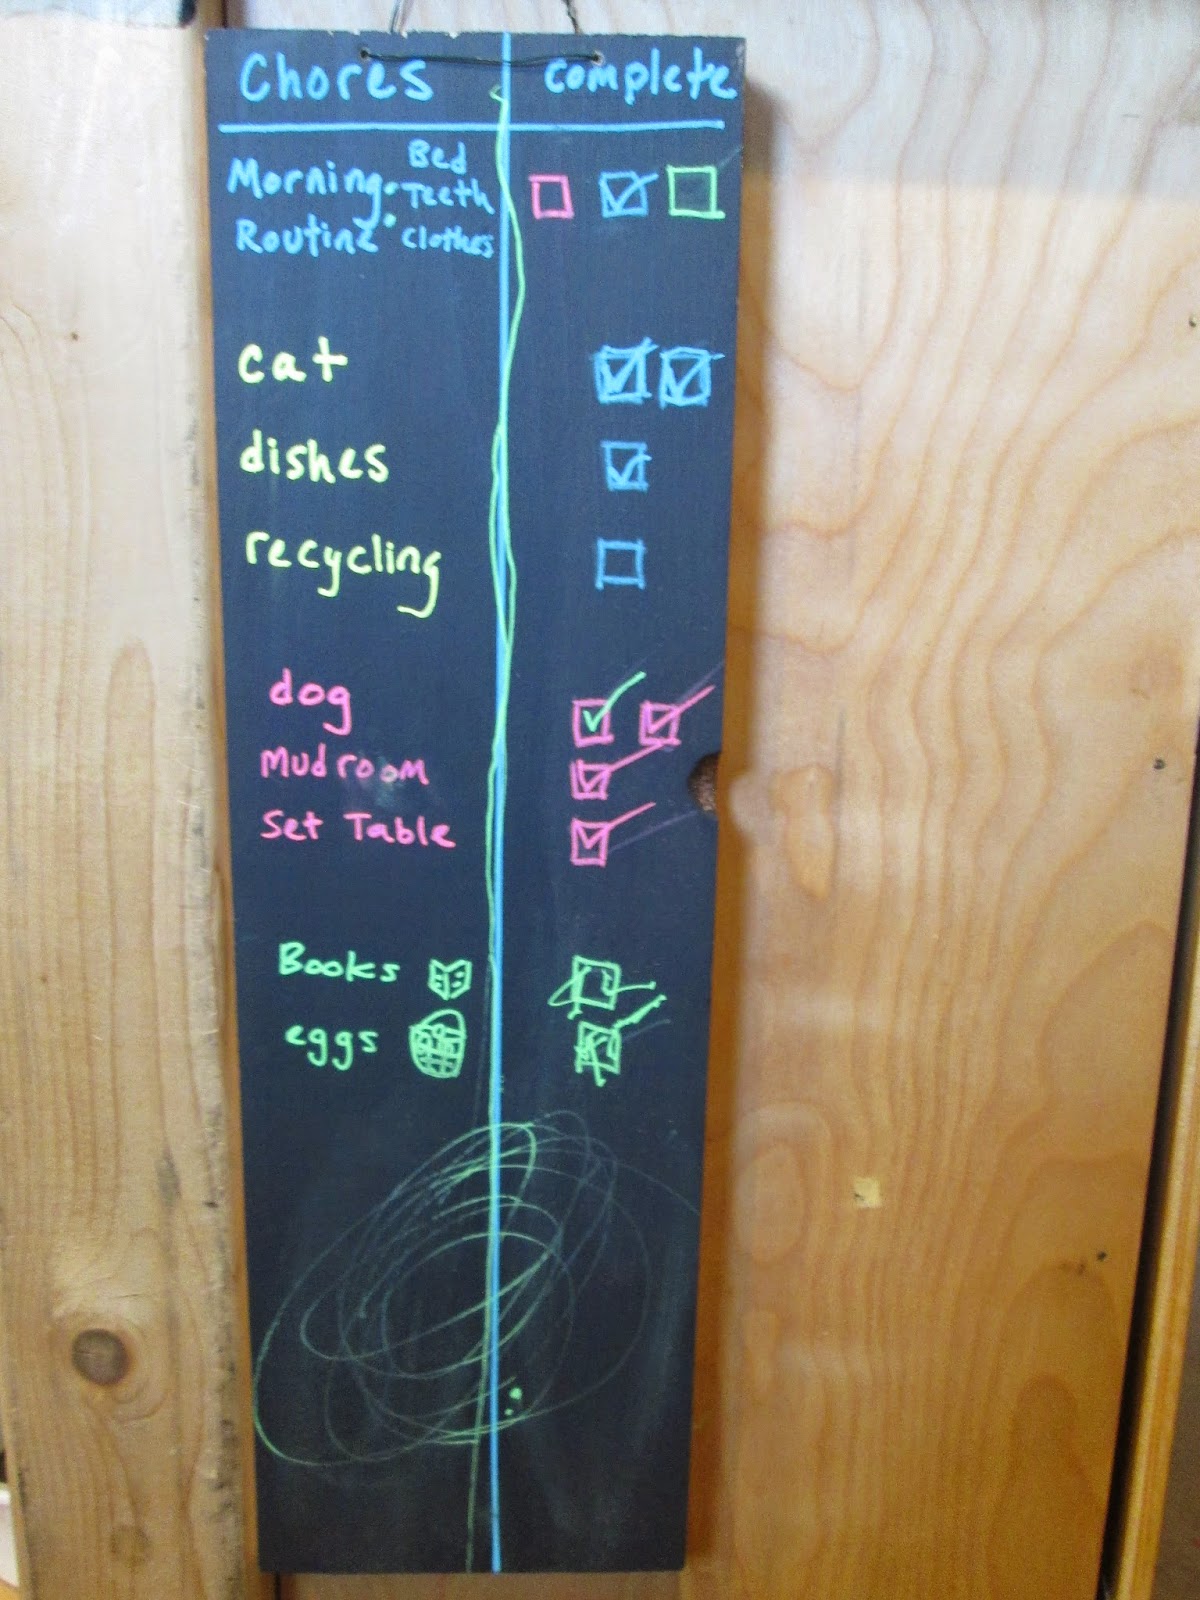 Chores complete
Bed
Morning • Teeth
Routine • clothes
cat
dishes
recycling
dog
Mudroom
Set Table
Books
eggs